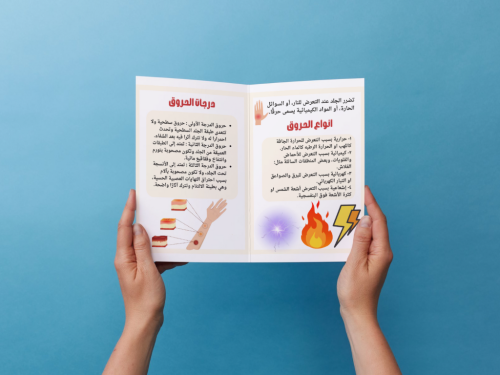 تضرر الجلد عند التعرض للنار، أو السوائل
الحارة، أو المواد الكيميائية يسمى حرقًا.
انواع الحروق
١- حرارية بسبب التعرض للحرارة الجافة
كاللهب او الحرارة الرطبة كالماء الحار.
٢- كيميائية بسبب التعرض للأحماض
والقلويات، وبعض المنظفات السامة مثل:
الفلاش.
٣- كهربائية بسبب التعرض للبرق والصواعق
أو التيار الكهربائي.
٤- إشعاعية بسبب التعرض أشعة الشمس او
كثرة الأشعة فوق البنفسجية.
درجات الحروق
حروق الدرجة الأولى : حروق سطحية ولا
تتعدى طبقة الجلد السطحية وتحدث
احمرارا له ولا تترك أثرا فيه بعد الشفاء.
حروق الدرجة الثانية : تمتد إلى الطبقات
العميقة من الجلد وتكون مصحوبة بتورم
وانتفاخ وفقاقيع مائية.
حروق الدرجة الثالثة : تمتد إلى الأنسجة
تحت الجلد، ولا تكون مصحوبة بآلام
بسبب احتراق النهايات العصبية الحسية،
وهي بطيئة الالتئام وتترك آثارًا واضحة.